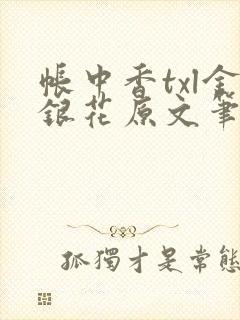 帳中香txl金
銀花原文筆
孤獨才是常態